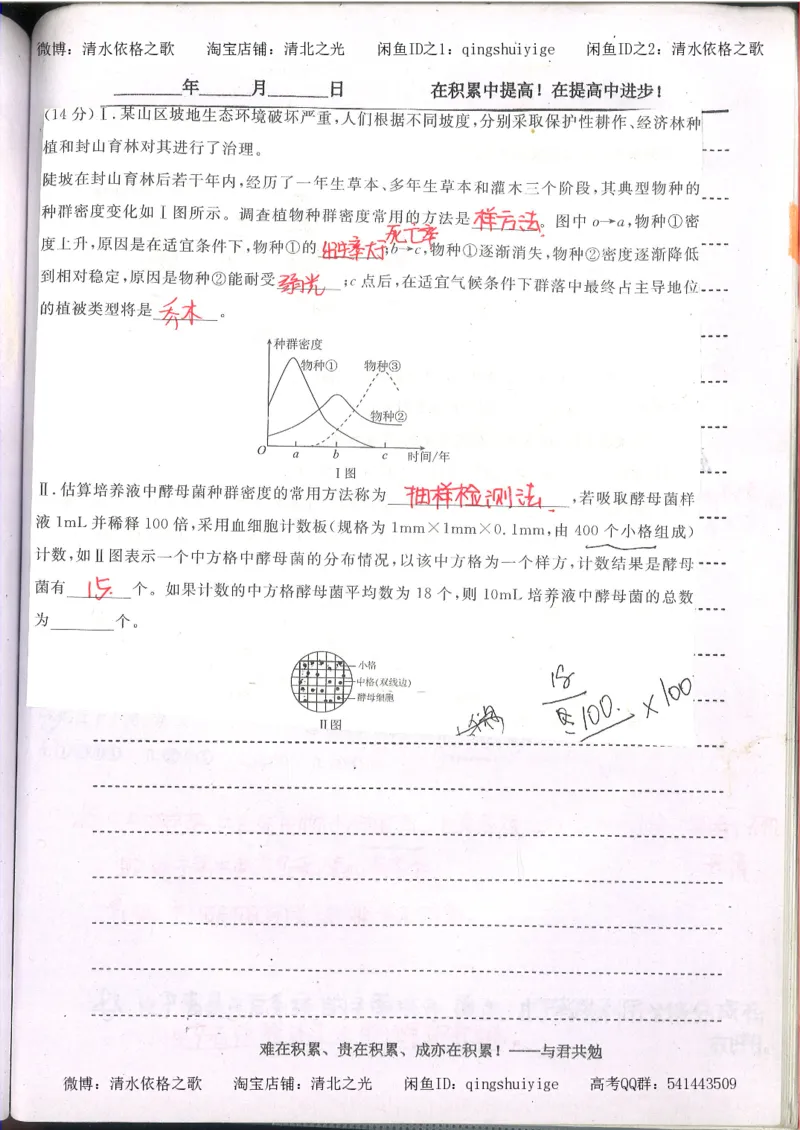 微博：清水依格之歌 淘宝店铺：清北之光 闲鱼ID之1：qingshuiyige 闲鱼ID之2：清水依格之歌
____年____月____日 在积累中提高！在提高中进步！
(14 分) Ⅰ.某山区坡地生态环境破坏严重,人们根据不同坡度,分别采取保护性耕作、经济林种
植和封山育林对其进行了治理。
陡坡在封山育林后若干年内,经历了一年生草本、多年生草本和灌木三个阶段,其典型物种的
种群密度变化如Ⅰ图所示。调查植物种群密度常用的方法是 样方法。图中 o→a,物种①密
死亡率
度上升,原因是在适宜条件下,物种①的 出生率大于;b→c,物种①逐渐消失,物种②密度逐渐降低
到相对稳定,原因是物种②能耐受 弱光 ;c 点后,在适宜气候条件下群落中最终占主导地位
的植被类型将是 乔木 。
种群密度
物种① 物种③
物种②
O a b c 时间/年
Ⅰ图
Ⅱ.估算培养液中酵母菌种群密度的常用方法称为 抽样检测法 ,若吸取酵母菌样
液 1mL 并稀释 100 倍,采用血细胞计数板(规格为 1mm×1mm×0.1mm,由 400 个小格组成)
计数,如Ⅱ图表示一个中方格中酵母菌的分布情况,以该中方格为一个样方,计数结果是酵母
菌有 15 个。如果计数的中方格酵母菌平均数为 18 个,则 10mL 培养液中酵母菌的总数
为____个。
小格
中格(双线边)
酵母细胞
Ⅱ图
100. ×100
难在积累、贵在积累、成亦在积累！——与君共勉
微博：清水依格之歌 淘宝店铺：清北之光 闲鱼ID：qingshuiyige 高考QQ群：541443509